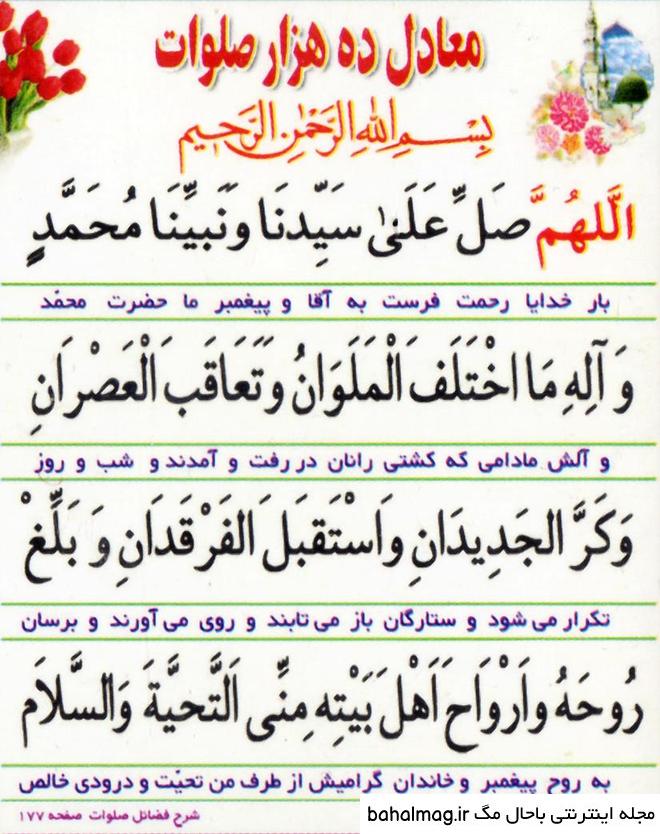 معادل ده هزار صلوات
بِسْمِ اللهِ الرَّحْمٰنِ الرَّحيمِ
اَللّهُمَّ صَلِّ عَلَىٰ سَيِّدِنَا وَنَبِيِّنَا مُحَمَّدٍ
بار خدایا رحمت فرست به آقا و پیغمبر ما حضرت محمّد
وَ آلِهِ مَا اخْتَلَفَ الْمَلَوَانُ وَتَعَاقَبَ الْعَصْرَانِ
و آلش مادامی که کشتی رانان در رفت و آمدند و شب و روز
وَكَرَّ الجَدِيدَانِ وَاسْتَقبَلَ الفَرْقَدَانِ وَ بَلِّغْ
تکرار می شود و ستارگان باز می تابند و روی می آورند و برسان
رُوحَهُ وَاَرْوَاحَ اَهْلَ بَيْتِهِ مِنِّى اَلتَّحيَّةَ وَالسَّلاَم
به روح پیغمبر و خاندان گرامیش از طرف من تحیّت و درودی خالص
شرح فضائل صلوات صفحه ۱۷۷
مجله اینترنتی باحال مگ bahalmag.ir